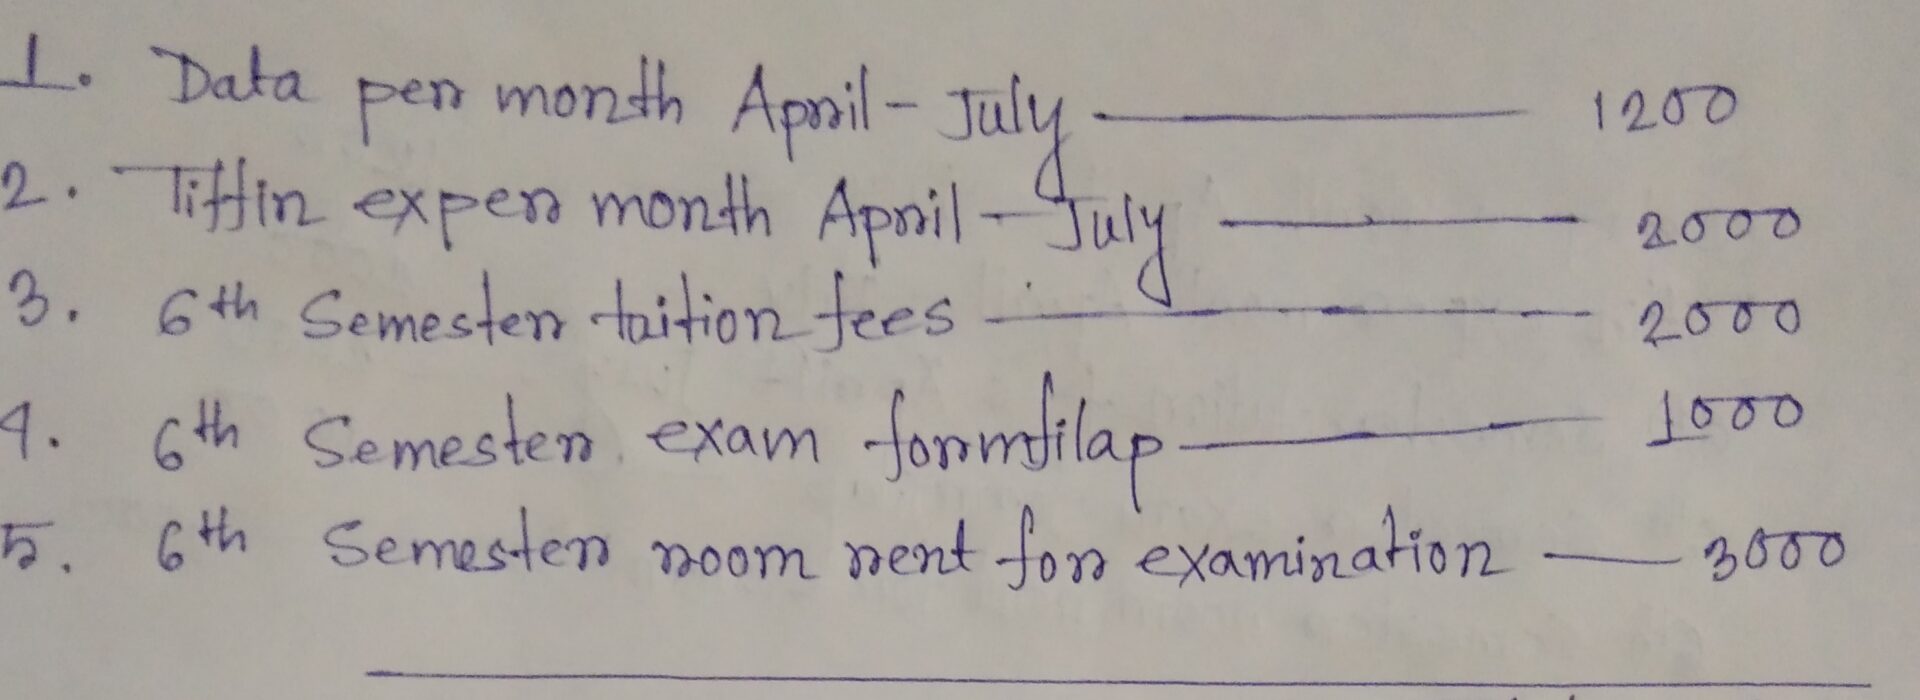 1. Data per month April - July — 1200
2. Tiffin exper month April - July — 2000
3. 6th Semester taition fees — 2000
4. 6th Semester exam formfilap — 1000
5. 6th Semester room rent for examination — 3000